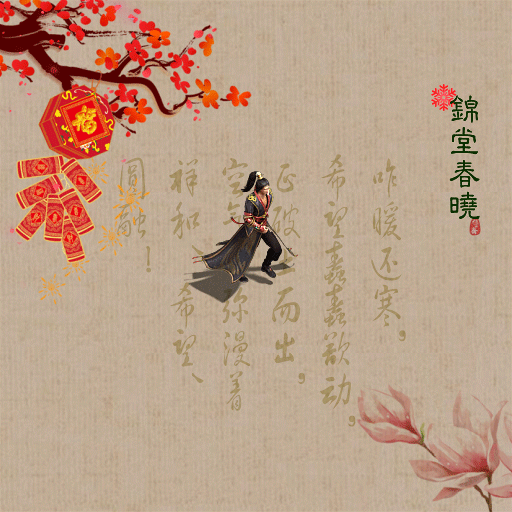 錦堂春曉
咋暖还寒，
希望蠢蠢欲动，
正破土而出，
空气弥漫着
祥和、希望、
圓融！